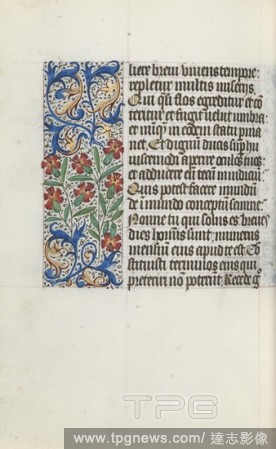 liere brevi vivens tempore
repletur multis miseriis
Qui q̃si flos egreditur et cõ
teritur et fugit velut umbra
et nũq̃ in eodem statu pma
net Et dignũ ducis sup hu
iuscemodi aperire oculos tuos
et adducere eũ tecũ in iudiciũ
Quis potest facere mundũ
de ĩmundo conceptũ semine
Nonne tu qui solus es breves
dies hominis sunt numerus
mensium eius apud te est Cõ
stituisti terminos eius qui
preteriri nõ poterũt Recede
TPG
www.tpgnews.com/ 達志影像